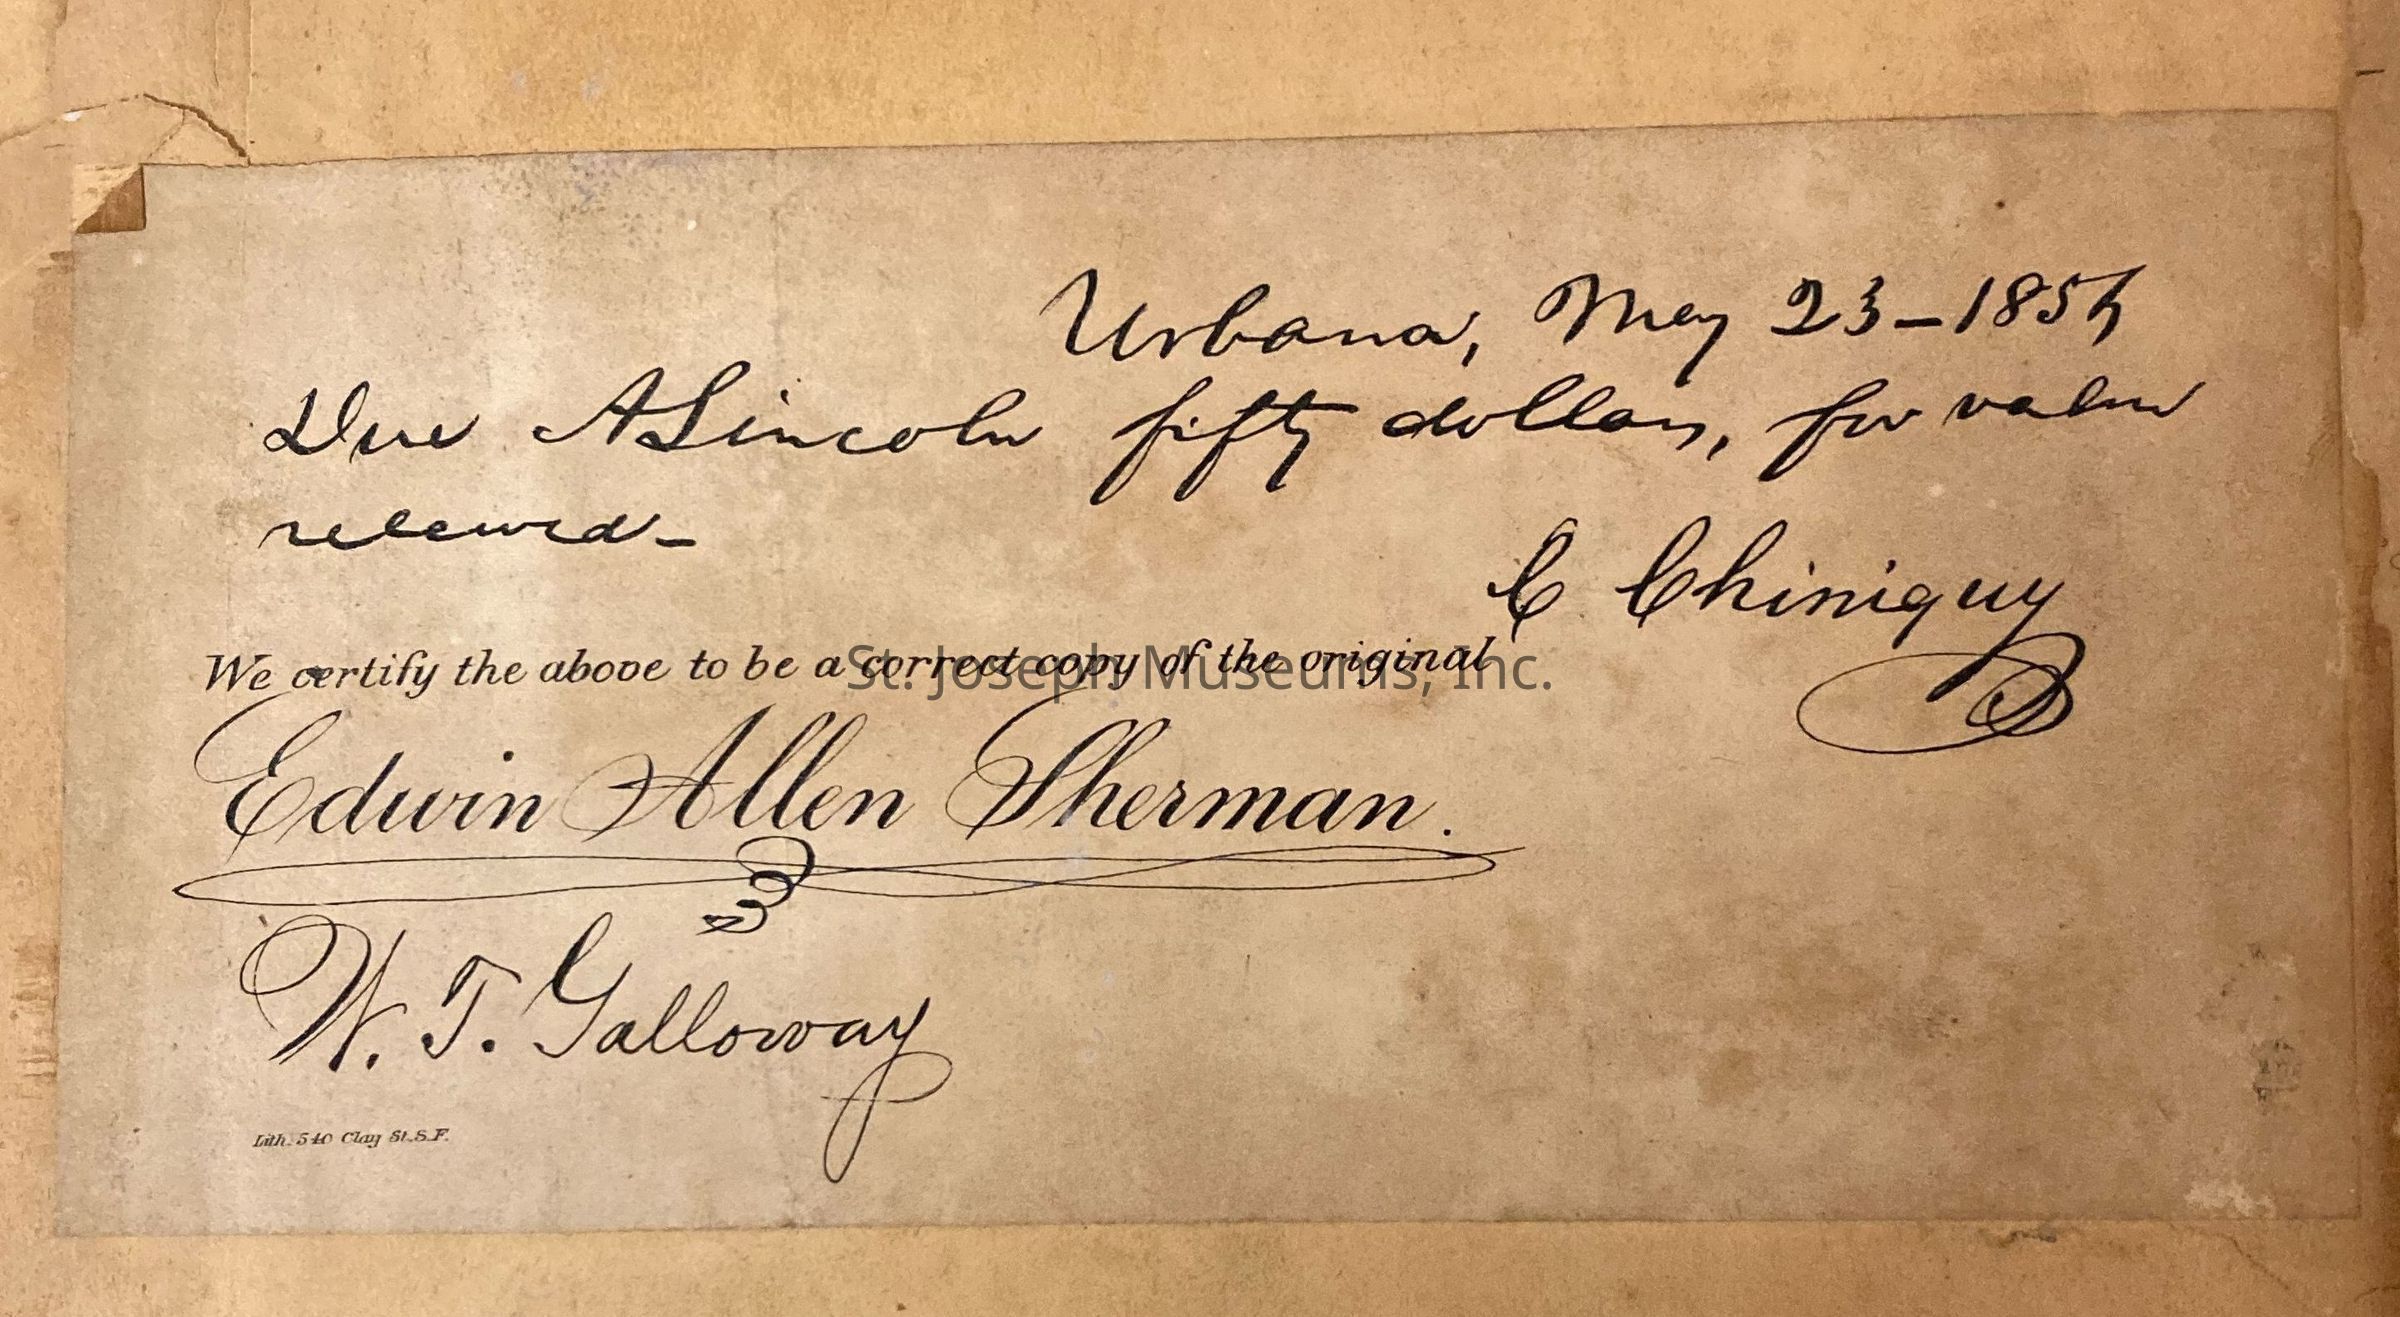 Urbana, May 23–1856
Due A Lincoln fifty dollars, for value
received–
C Chiniquy
We certify the above to be a correct copy of the original
St. Joseph Museums, Inc.
Edwin Allen Sherman.
W. T. Galloway
Lith. 540 Clay St. S.F.